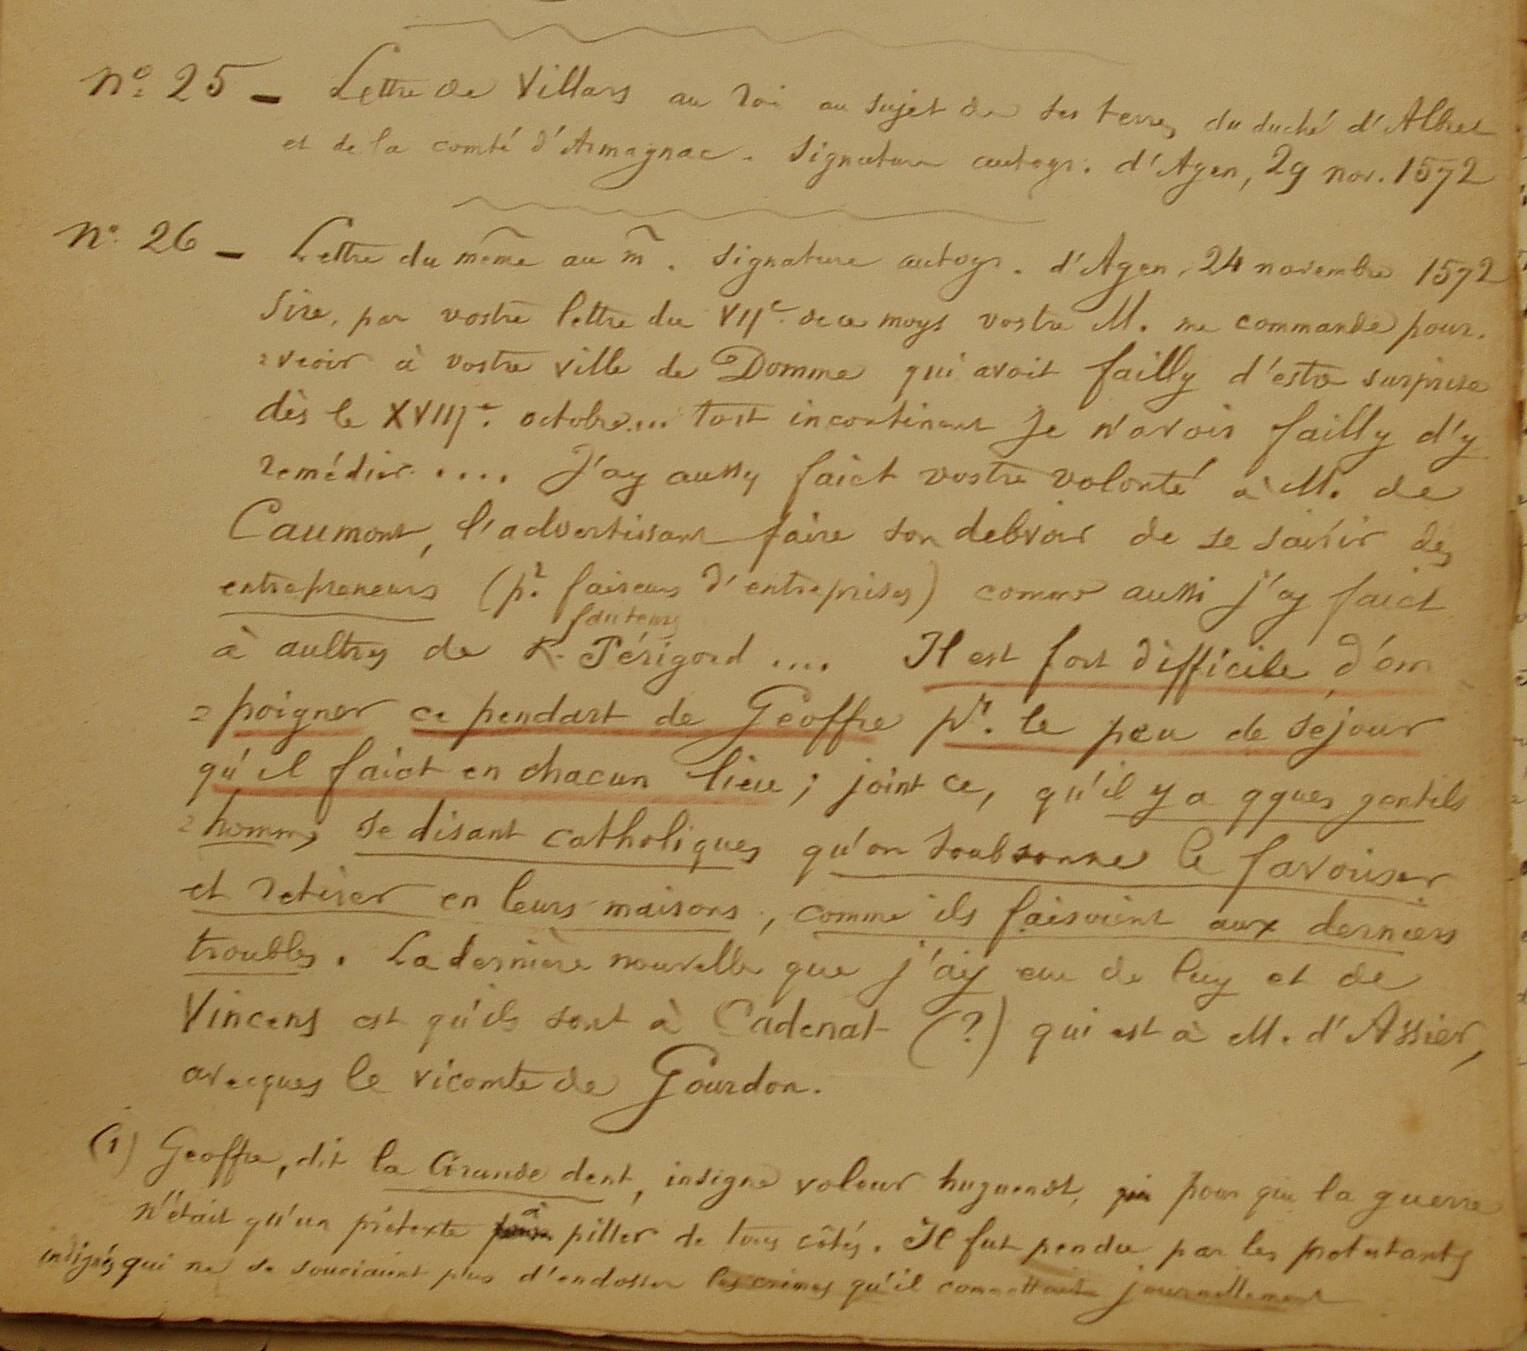 nº 25 - Lettre de Villars au roi au sujet de ses terres du duché d'Albret
et de la comté d'Armagnac. Signature autogr. d'Agen, 29 nov. 1572
nº 26 - Lettre du même au m. signature autogr. d'Agen, 24 novembre 1572
Sire, par vostre lettre du VIIe de ce moys vostre M. me commande pour-
veoir à vostre ville de Domme qui avoit failly d'estre surprise
dès le XVIIIe octobre... tost incontinent je n'avois failly d'y
remédier.... J'ay aussy faict vostre volonté à M. de
Caumont, l'advertissant faire son debvoir de se saisir des
entrepreneurs (pr. faiseurs d'entreprises) comme aussi j'ay faict
fauteurs
à aultres de Périgord.... Il est fort difficile d'em
poigner ce pendart de Geoffre pr. le peu de séjour
qu'il faict en chacun lieu; joint ce, qu'il y a qques gentils
hommes se disant catholiques qu'on soubsonne le favoriser
et retirer en leurs maisons, comme ils faisoient aux derniers
troubles. La dernière nouvelle que j'ay eue de luy et de
Vincens est qu'ils sont à Cadenat (?) qui est à M. d'Assier,
avecques le vicomte de Gourdon.
(1) Geoffre, dit la Grande dent, insigne voleur huguenot, pour qui la guerre
n'était qu'un prétexte à piller de tous côtés. Il fut pendu par les protestants
indignés qui ne se souciaient plus d'endosser les crimes qu'il commettait journellement